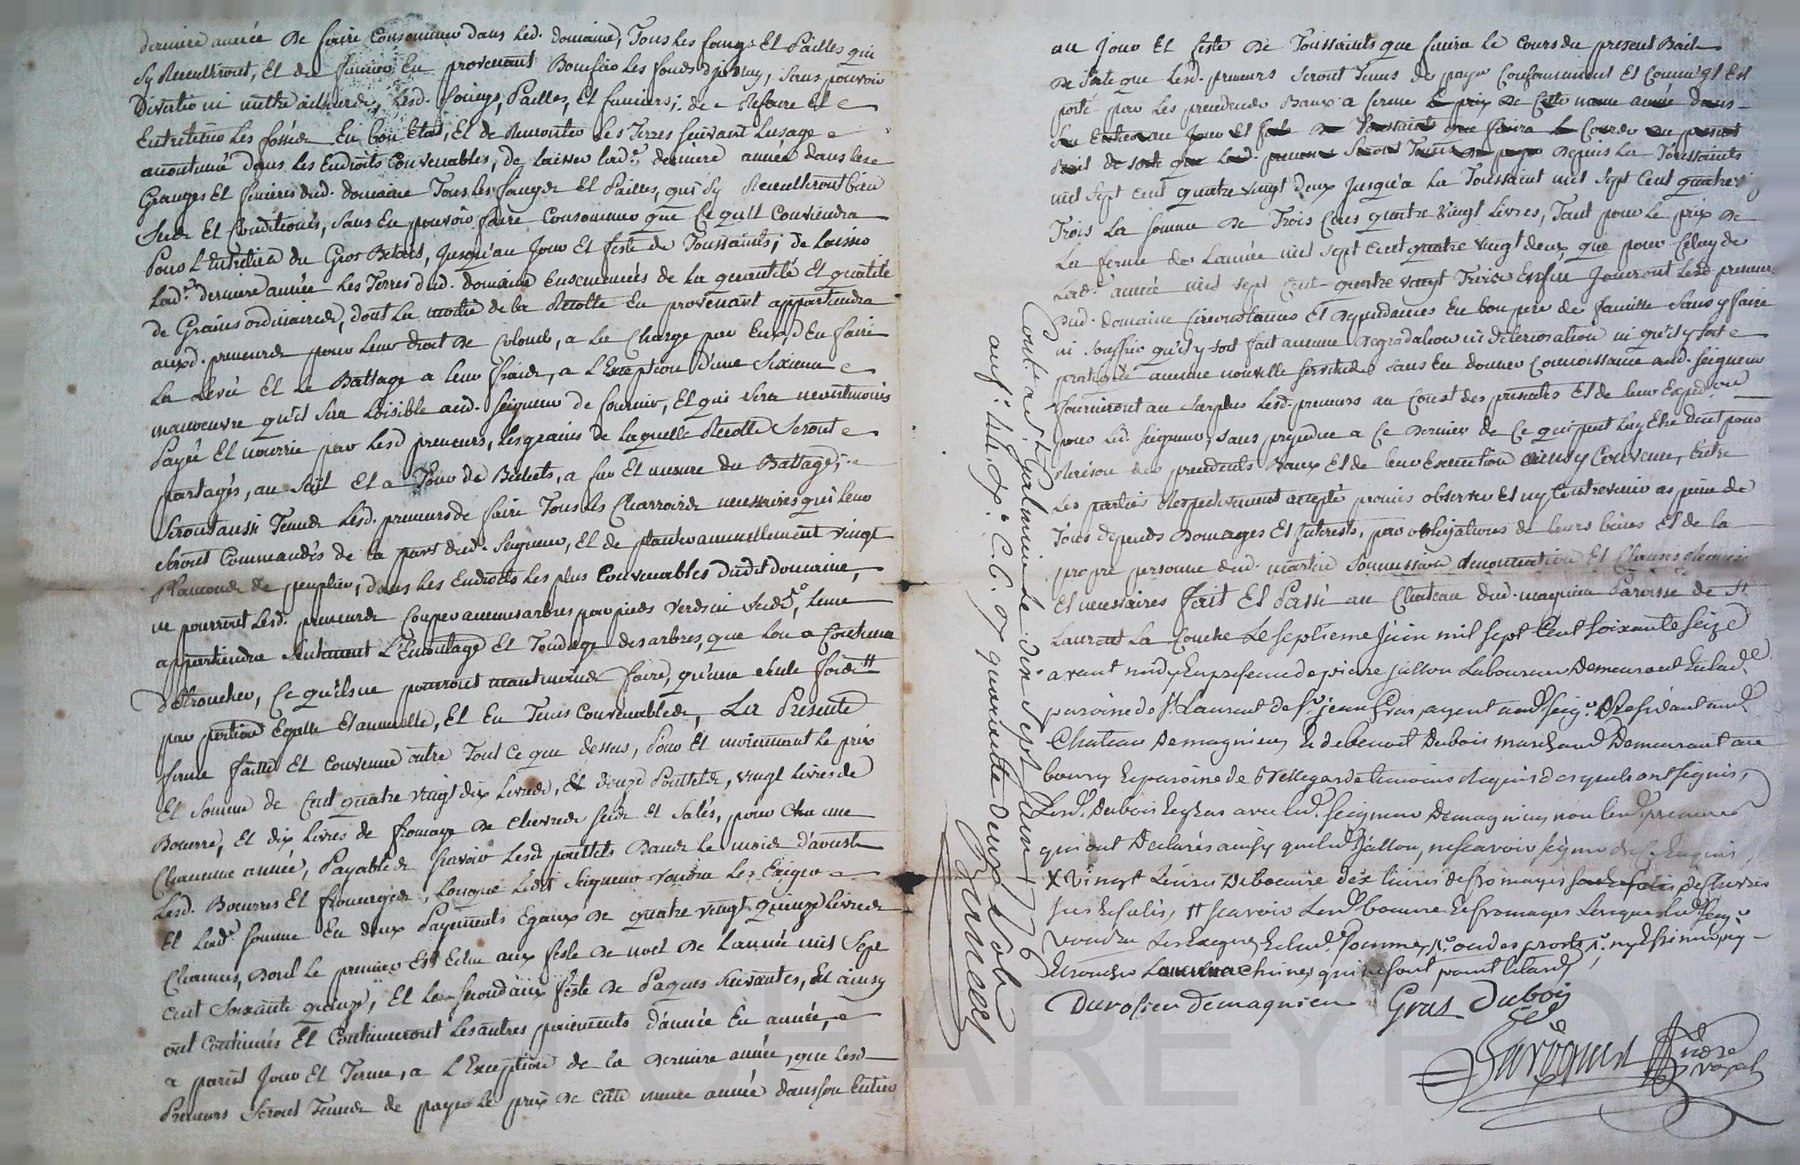 derniere année De faire Consommer dans Led. domaine, Tous Les foings Et Pailles qui
sy Recueilliront, Et du fumier En provenant Bonifier Les fonds d'jceluy, sans pouvoir
Divertir ni mettre ailleurs, Lesd. foings, Pailles, Et fumiers; de Refaire Et
Entretenir Les fossés En bon Etat, Et de Remonter Les Terres suivant Lusage
accoutumé dans Les Endroits Convenables, de Laisser Lade. derniere année dans Les
Granges Et feniers dud. domaine Tous Les foings Et Pailles, qui sy Recueilliront bien
Secs Et Conditionés, sans En pouvoir faire Consommer que Ce qu'il Conviendra
Pour L'Entretien du Gros Betail, Jusqu'au Jour Et feste de Toussaints; de Laisser
Lade. derniere année Les Terres dud. domaine Ensemencées de La quantité Et qualité
de Grains ordinaires, dont La moitié de la Recolte En provenant appartiendra
auxd. preneurs pour Leur droit De Colons, a La Charge par Eux, d'En faire
La Levée Et Le Battage a Leur fraix, a L'Exception d'une Sixieme
manoeuvre qu'il sera Loisible aud. Seigneur de fournir, Et qui Sera neantmoins
Payée Et nourrie par Lesd preneurs, Les grains de Laquelle Recolte Seront
partagés, au Sait Et a Tour de Billets, a fur Et mesure du Battage;
Seront aussi Tenus Lesd. preneurs de faire Tous Les Charroirs necessaires qui Leur
Seront Commandés de la part dud. Seigneur, Et de planter annuellement vingt
Plançons de peuplier, dans Les Endroits Les plus Convenables Dudit domaine,
ne pourront Lesd. preneurs Couper aucuns arbres par pieds verds ni Secs, Leur
appartiendra Seulement L'Emoulage Et Tondage des arbres, que Lon a Coutume
d'Etroncher, Ce qu'ils ne pourront neantmoins faire, qu'une seule fois
par portion Egalle Et annuelle, Et En Tems Convenables, La Presente
ferme faitte Et Convenue outre Tout Ce que dessus, Pour Et moienant Le prix
Et Somme de Cent quatre vingt dix Livres, Et douze Poullets, vingt Livres de
Beurre, Et dix Livres de fromage De Chevres secs Et Salés, pour Chacune
Chacune année, Payables Scavoir Lesd. poullets Dans Le mois d'aoust
Lesd. Beurres Et fromages, Lorsque Ledit Seigneur voudra Les Exiger
Et Lade. somme En deux Payements Egaux De quatre vingt quinze Livres
Chacuns, Dont Le premier Est Echu aux feste De noel De L'année mil Sept
Cent Soixante quinze, Et Le second aux feste De Paques Suivantes, Et ainsy
ont Continués Et Continueront Les autres paiements d'année En année,
a pareil Jour Et Terme, a L'Exception de La Derniere année, que Lesd.
Preneurs Seront Tenus de payer Le prix De Cette meme année dans son Entier
au Jour Et feste De Toussaints que finira Le Cours du present Bail
De Sorte que Lesd. preneurs Seront Tenus de payer Conformement Et Comme il Est
porté par Les precedents Baux a ferme Le prix De Cette meme année dans
Son Entier au Jour Et feste De Toussaint que finira Le Cours du present
Bail de sorte que Lesd. preneurs Seront Tenus De payer Depuis La Toussaints
mil sept cent quatre vingt deux Jusqu'a La Toussaint mil sept Cent quatre vingt
Trois La somme De Trois Cens quatre vingt Livres, Tant pour Le prix De
La ferme de L'année mil sept cent quatre vingt deux que pour Celuy de
Lade. année mil sept Cent quatre vingt Trois Enfin Jouiront Lesd. preneurs
Dud. domaine Circonstances Et Dependances En bon pere de famille Sans y faire
ni Souffrir qu'il y soit fait aucune Degradation ni deterioration ni qu'il y soit
pratiqué aucune nouvelle Servitude Sans En donner Connoissance aud. Seigneur
fourniront au Surplus Lesd. preneurs au Coust des presentes Et de Leur Expedon.
pour Led. Seigneur, Sans prejudice a Ce Dernier de Ce qui peut Luy Etre deub pour
Raison des precedents Baux Et de Leur Execution ainsy Convenu, Entre
Les parties Respectivement accepté promis observer Et n'y Contrevenir a peine de
Tous depends Domages Et Interests, par obligations de Leurs biens Et de La
propre personne dud. martin Soumission Renonciation Et Clauses
Et necessaires fait Et Passé au Chateau dud. magnieu Paroisse de St.
Laurent La Conche Le septieme Juin mil sept Cent soixante Seize
avant midy En presence de pierre Jallon Laboureur Demeurant En Lade.
paroisse de St. Laurent de Sr. jean Gras, agent aud. seigr. Residant aud.
Chateau Demagnieu Et de benoit Dubois marchand Demeurant au
bourg Et paroisse de Bellegarde temoins Requis desquels ont signés,
Lesd. Dubois Et gras avec led. Seigneur Demagnieu non Lesd. preneurs
qui ont Declarés ainsy que Led. Jallon, ne scavoir signer de ce Enquis
X Vingt Livres De beurre dix livres de fromages de chevres
secs Et salés, tt scavoir Lesd. beurre Et fromages Lorsque Led. seigr.
voudra Les Exiger Et Lad. somme,
Duroseier Demagnieu Gras Dubois
Controlé a St. Galmier Le dix Sept Juin 1776
quarante deux sols
Bernard